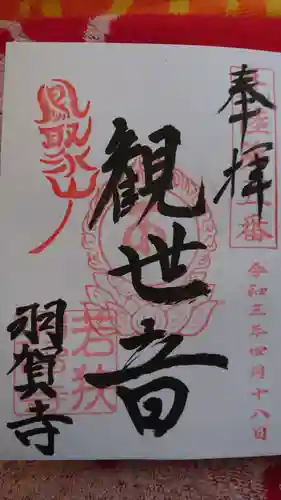 奉拝
令和三年四月十八日
観世音
鳳聚山
羽賀寺
若狭